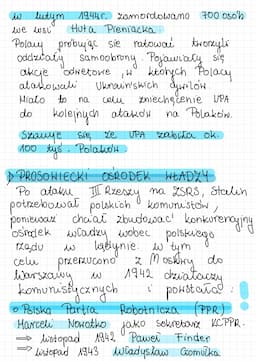 w lutym 1944r. zamordowano 700 osób
we wsi Huta Pieniacka
Polacy próbując się ratować tworzyli
oddziały samoobrony. Pojawiały się
akcje odwetowe, w których Polacy
atakowali ukraińskich cywilów
Miało to na celu zniechęcenie UPA
do kolejnych ataków na Polaków.
Szacuje się że UPA zabiła ok.
100 tyś. Polaków
PROSOWIECKI OŚRODEK WŁADZY
Po ataku III Rzeszy na ZSRS, Stalin
potrzebował polskich komunistów,
ponieważ chciał zbudować konkurencyjny
ośrodek władzy wobec polskiego
rządu w Lądynie. W tym
celu przerzucono z Moskwy do
Warszawy w 1942 działaczy
komunistycznych i powstała: !
o Polska Partia Robotnicza (PPR)
Marceli Nowotko jako sekretarz KCPPR.
→ listopad 1942 Paweł Finder
→ listopad 1943 Władysław Gomułka